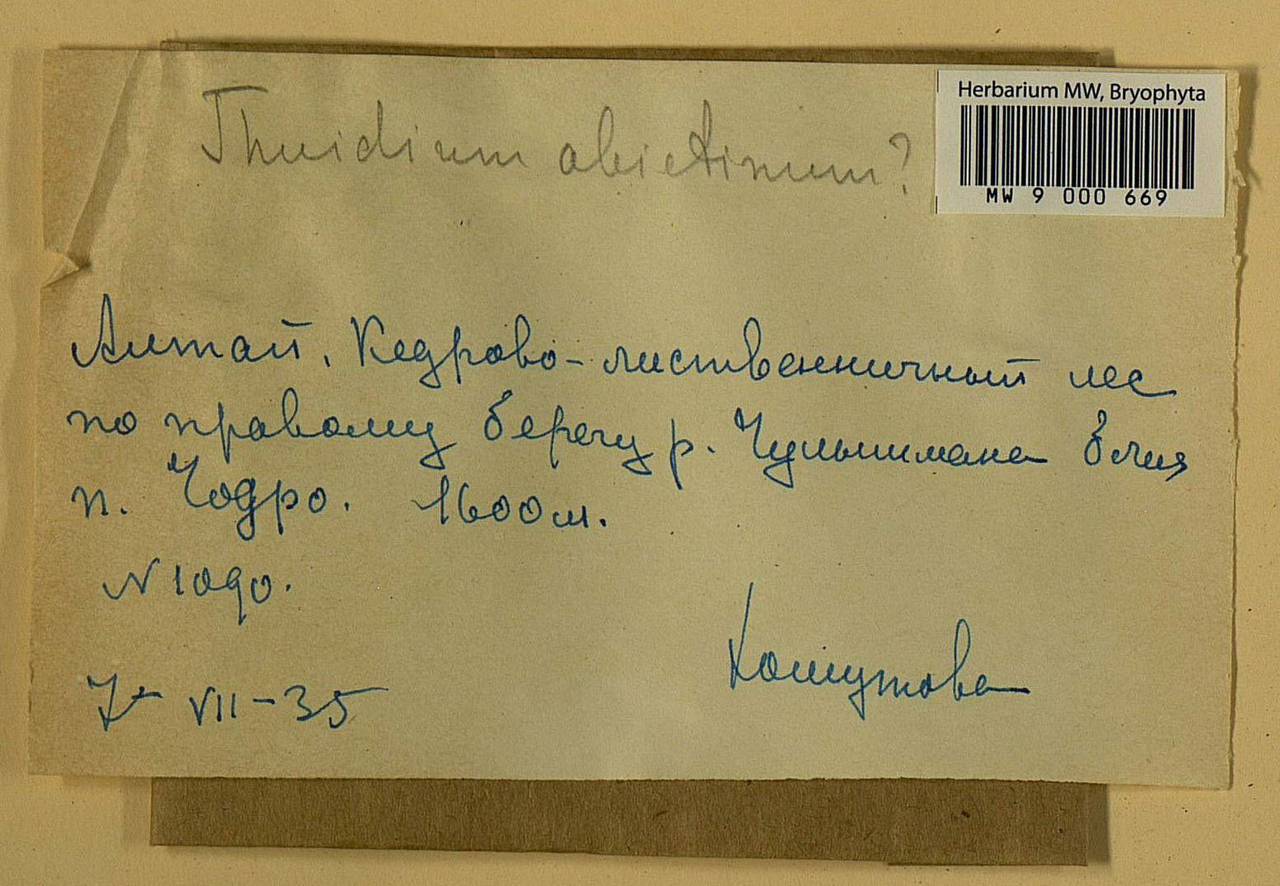 Herbarium MW, Bryophyta
MW 9 000 669
Thuidium abietinum?
Алтай. Кедрово-лиственничный лес
по правому берегу р. Чулышмана близ
п. Чодро. 1600 м.
N 1090.
7 VII-35